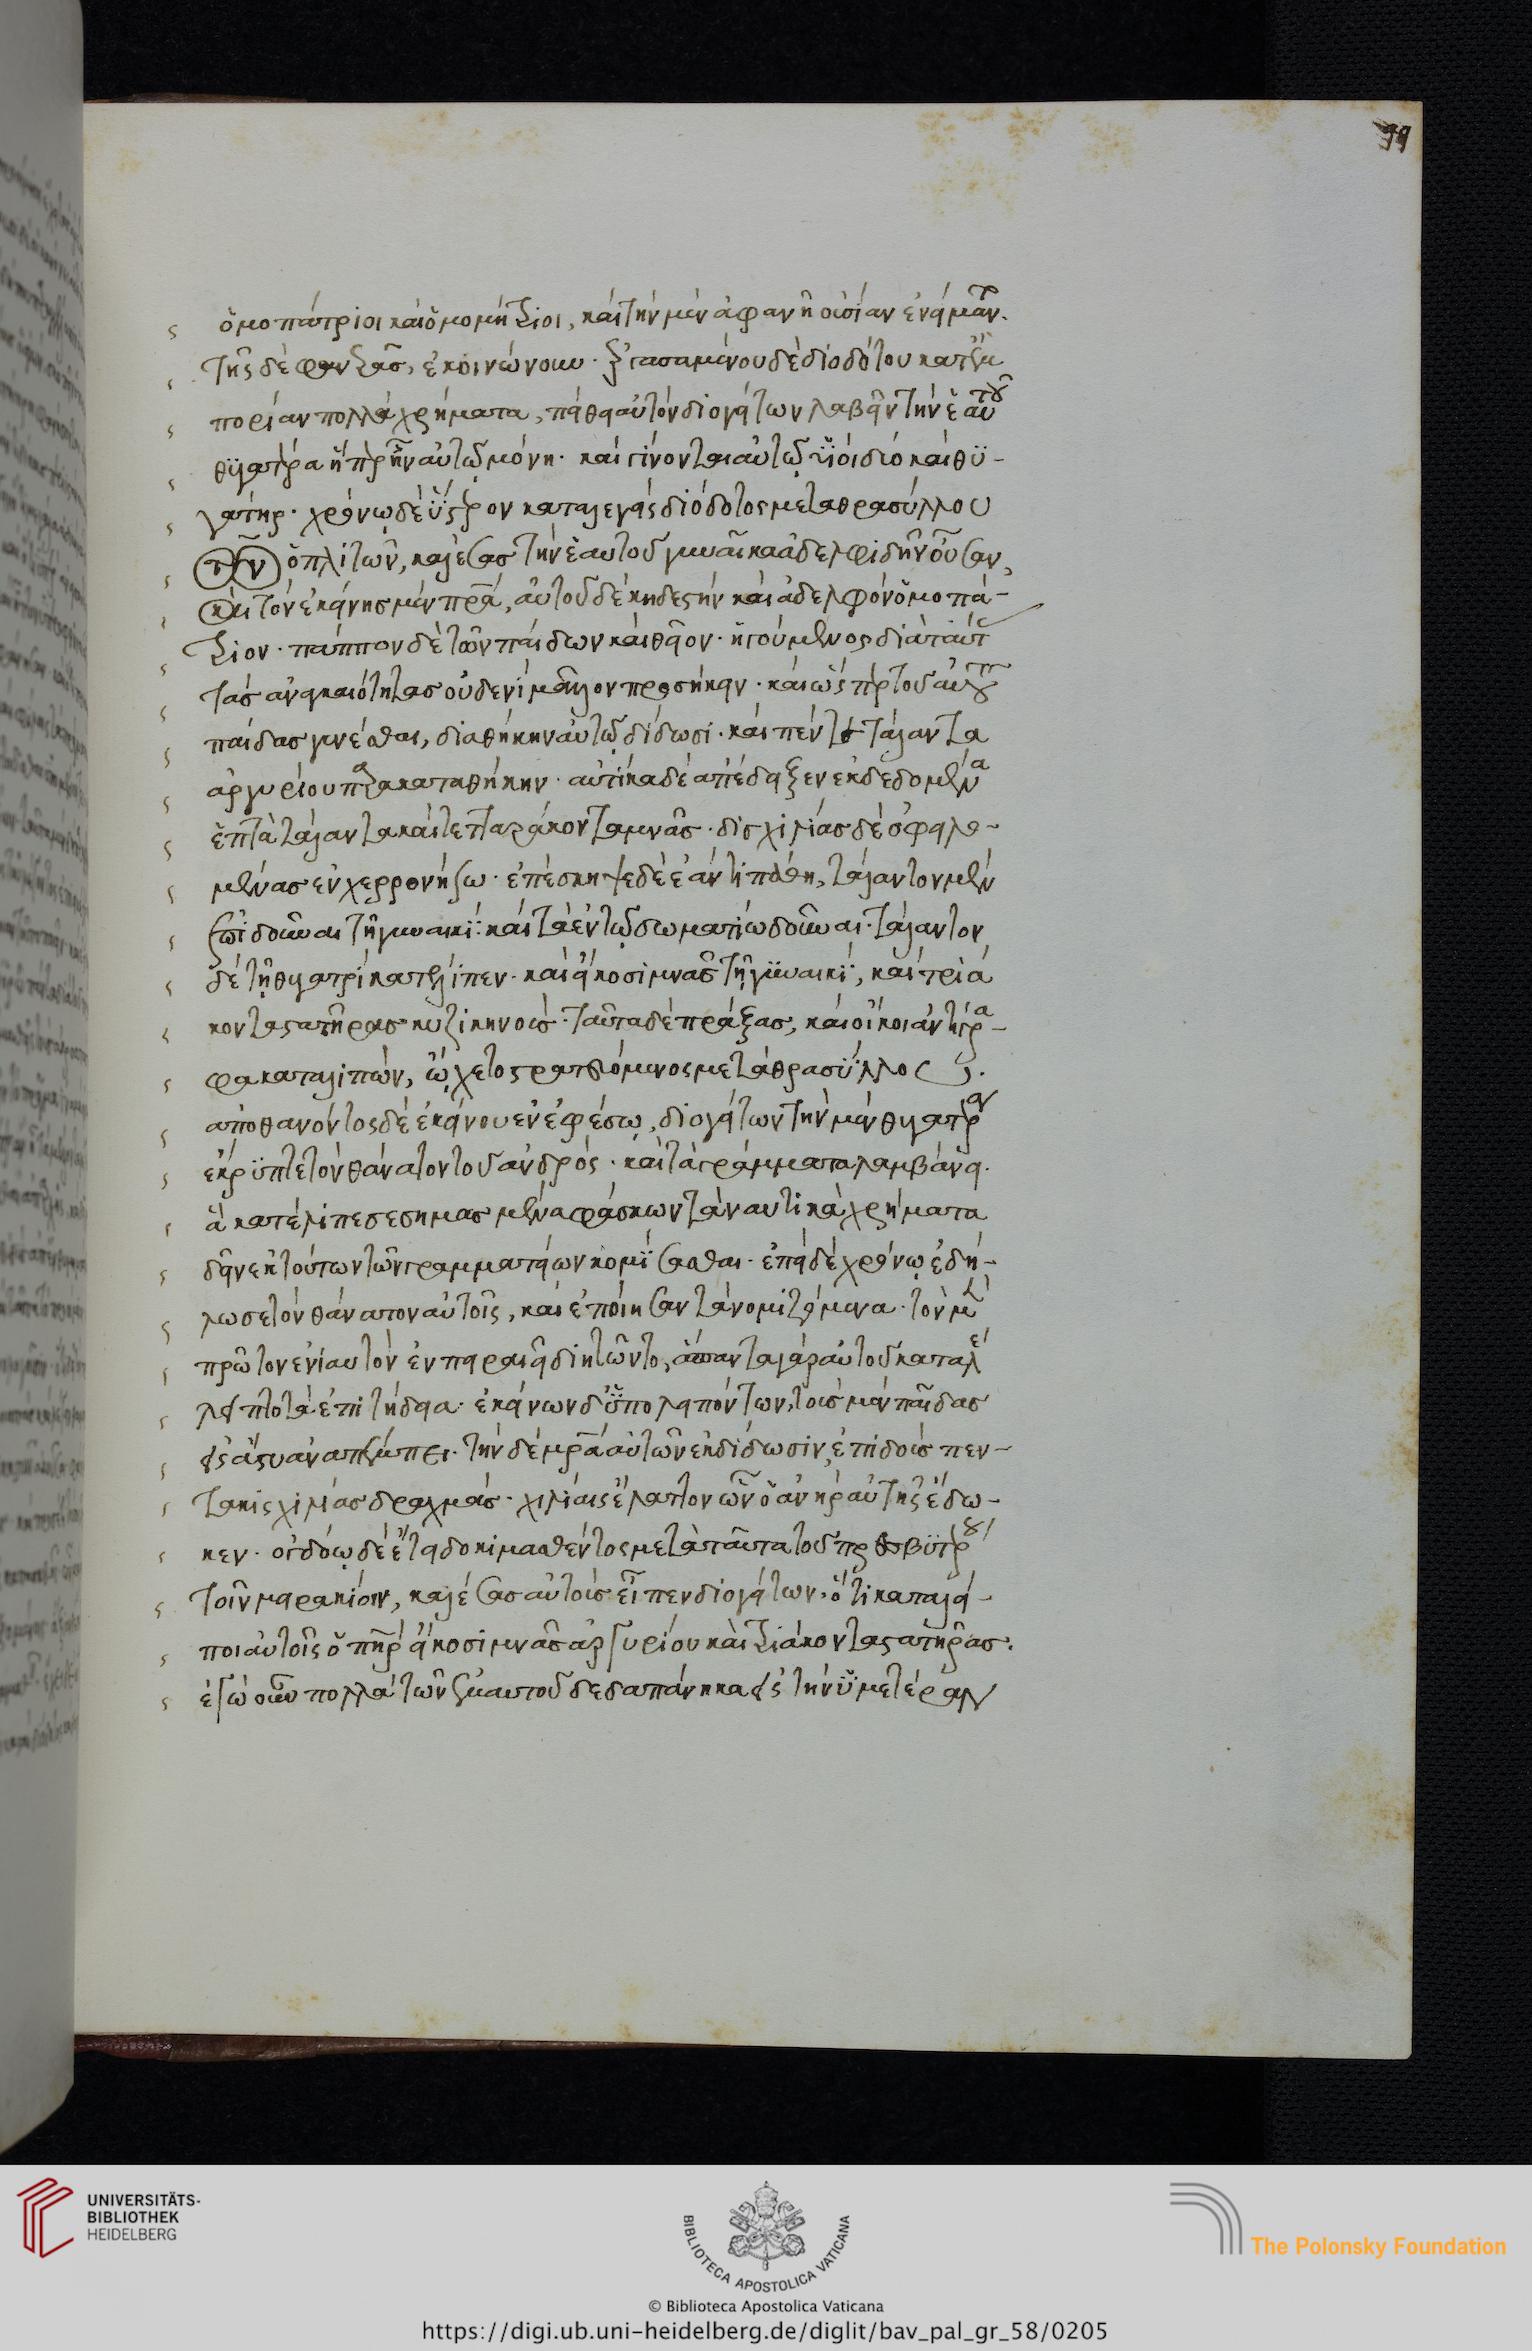 99
ὁμοπάτριοι καὶ ὁμομήτριοι, καὶ τὴν μὲν ἀφανῆ οὐσίαν ἐνείμαντ
τῆς δὲ φανερᾶς, ἐκοινώνουν· ἐργασαμένου δὲ διοδότου κατ' ἐμ
πορίαν πολλὰ χρήματα, πείθει αὐτὸν διογείτων λαβεῖν τὴν ἑαυτοῦ
θυγατέρα ἥπερ ἦν αὐτῷ μόνη· καὶ γίνονται αὐτῷ ὑιοὶ δύο καὶ θυ-
γάτηρ· χρόνῳ δὲ ὕστερον καταλεγεὶς διόδοτος μετὰ θρασύλλου
τῶν ὁπλιτῶν, καλέσας τὴν ἑαυτοῦ γυναῖκα ἀδελφιδῆν οὖσαν,
καὶ τὸν ἐκείνης μὲν πρα, αὐτοῦ δὲ κηδεστὴν καὶ ἀδελφὸν ὁμοπά-
τριον· πάππον δὲ τῶν παίδων καὶ θεῖον· ἡγούμενος διὰ ταύτ
τὰς ἀναγκαιότητας οὐδενὶ μᾶλλον προσήκειν· καὶ ὡς περὶ τοῦ αὐτοῦ
παῖδας γενέσθαι, διαθήκην αὐτῷ δίδωσι· καὶ πέντε τάλαντα
ἀργυρίου παρακαταθήκην· αὐτίκα δὲ ἀπέδειξεν ἐκδεδομένα
ἑπτὰ τάλαντα καὶ τετταράκοντα μνᾶς· δισχιλίας δὲ ὀφειλο-
μένας ἐν χερρονήσω· ἐπέσκηψε δὲ ἐάν τι πάθη, τάλαντον μὲν
ἐπιδοῦναι τῆ γυναικί· καὶ τὰ ἐν τῷ δωματίω δοῦναι· τάλαντον
δὲ τῆ θυγατρὶ κατέλιπεν· καὶ εἴκοσι μνᾶς τῆ γυναικί, καὶ τριά
κοντα στατῆρας κυζικηνούς· ταῦτα δὲ πράξας, καὶ οἴκοι ἀντίγρα-
φα καταλιπών, ὤχετο στρατευόμενος μετὰ θρασύλλου.
ἀποθανόντος δὲ ἐκείνου ἐν ἐφέσω, διογείτων τὴν μὲν θυγατέραν
ἔκρυπτε τὸν θάνατον τοῦ ἀνδρός· καὶ τὰ γράμματα λαμβάνει.
ἃ κατέλιπε σεσημασμένα φάσκων τὰ ναυτικὰ χρήματα
δεῖν ἐκ τούτων τῶν γραμματείων κομίσασθαι· ἐπεὶ δὲ χρόνῳ ἐδή-
λωσε τὸν θάνατον αὐτοῖς, καὶ ἐποίησαν τὰ νομιζόμενα· τὸν μὲν
πρῶτον ἐνιαυτὸν ἐν πειραιεῖ διητῶντο, ἅπαντα γὰρ αὐτοῦ καταλέ
λειπτο τὰ ἐπιτήδεια· ἐκείνων δ' ὑπολειπόντων, τοὺς μὲν παῖδας
εἰς ἄστυ ἀναπέμπει· τὴν δὲ μρα αὐτῶν ἐκδίδωσιν, ἐπιδοὺς πεν-
τακισχιλίας δραχμάς· χιλίαις ἔλαττον ὧν ὁ ἀνὴρ αὐτῆς ἔδω-
κεν· ὀγδόῳ δὲ ἔτει δοκιμασθέντος μετὰ ταῦτα τοῦ πρεσβυτέρου
τοῖν μειρακίοιν, καλέσας αὐτοὺς εἶπεν διογείτων· ὅτι καταλεί-
ποι αὐτοῖς ὁ πηρ εἴκοσι μνᾶς ἀργυρίου καὶ τριάκοντα στατῆρας.
ἐγὼ οὖν πολλὰ τῶν ἐμαυτοῦ δεδαπάνηκα εἰς τὴν ὑμετέραν
UNIVERSITÄTS-
BIBLIOTHEK
HEIDELBERG
BIBLIOTECA APOSTOLICA VATICANA
The Polonsky Foundation
© Biblioteca Apostolica Vaticana
https://digi.ub.uni-heidelberg.de/diglit/bav_pal_gr_58/0205